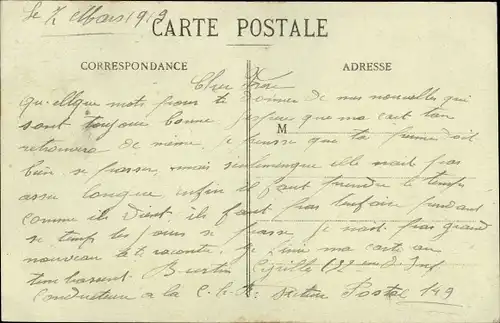 le 7 Mars 1919
CARTE POSTALE
CORRESPONDANCE
ADRESSE
M
Cher
quellque mots pour te donner de nos nouvelles qui
sont toujour bonne j'espère que ma cart tan
retrouvera de même. je pense que ta perme doit
bien se passer, mais seulemenque elle nait pas
asser longue enfin il faut prendre le temps
comme ils vient ils faut pas lenfaire pendant
se temps les jours se passe je nait pas grand
nouveau a te raconte. Je fini ma carte en
tembrasent. Bertin Cyrille 132 em d inf
Conducteur a la C. Secteur Postal 149